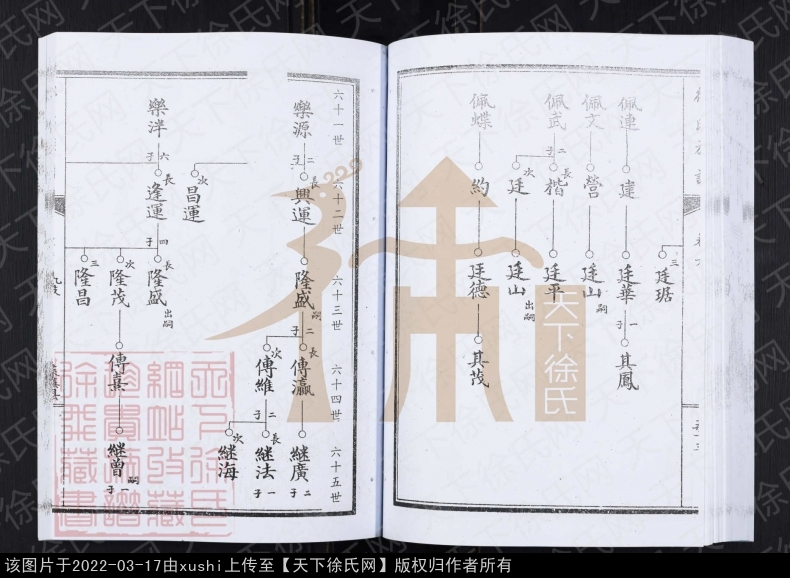 三
廷琚
佩連
建
廷華
子一
其鳳
佩文
營
廷山
嗣
佩武
子二
長
楷
廷平
次
廷
廷山
出嗣
佩蝶
約
廷德
其茂
六十一世
六十二世
六十三世
六十四世
六十五世
樂源
子二
長
興運
隆盛
嗣
子二
長
傳瀛
継廣
子二
次
傳維
子二
長
継法
子一
次
継海
次
昌運
樂泮
子六
長
逢運
子四
長
隆盛
出嗣
次
隆茂
傳熹
継曾
嗣
子一
三
隆昌
天下徐氏
天下徐氏网
该图片于2022-03-17由xushi上传至【天下徐氏网】版权归作者所有